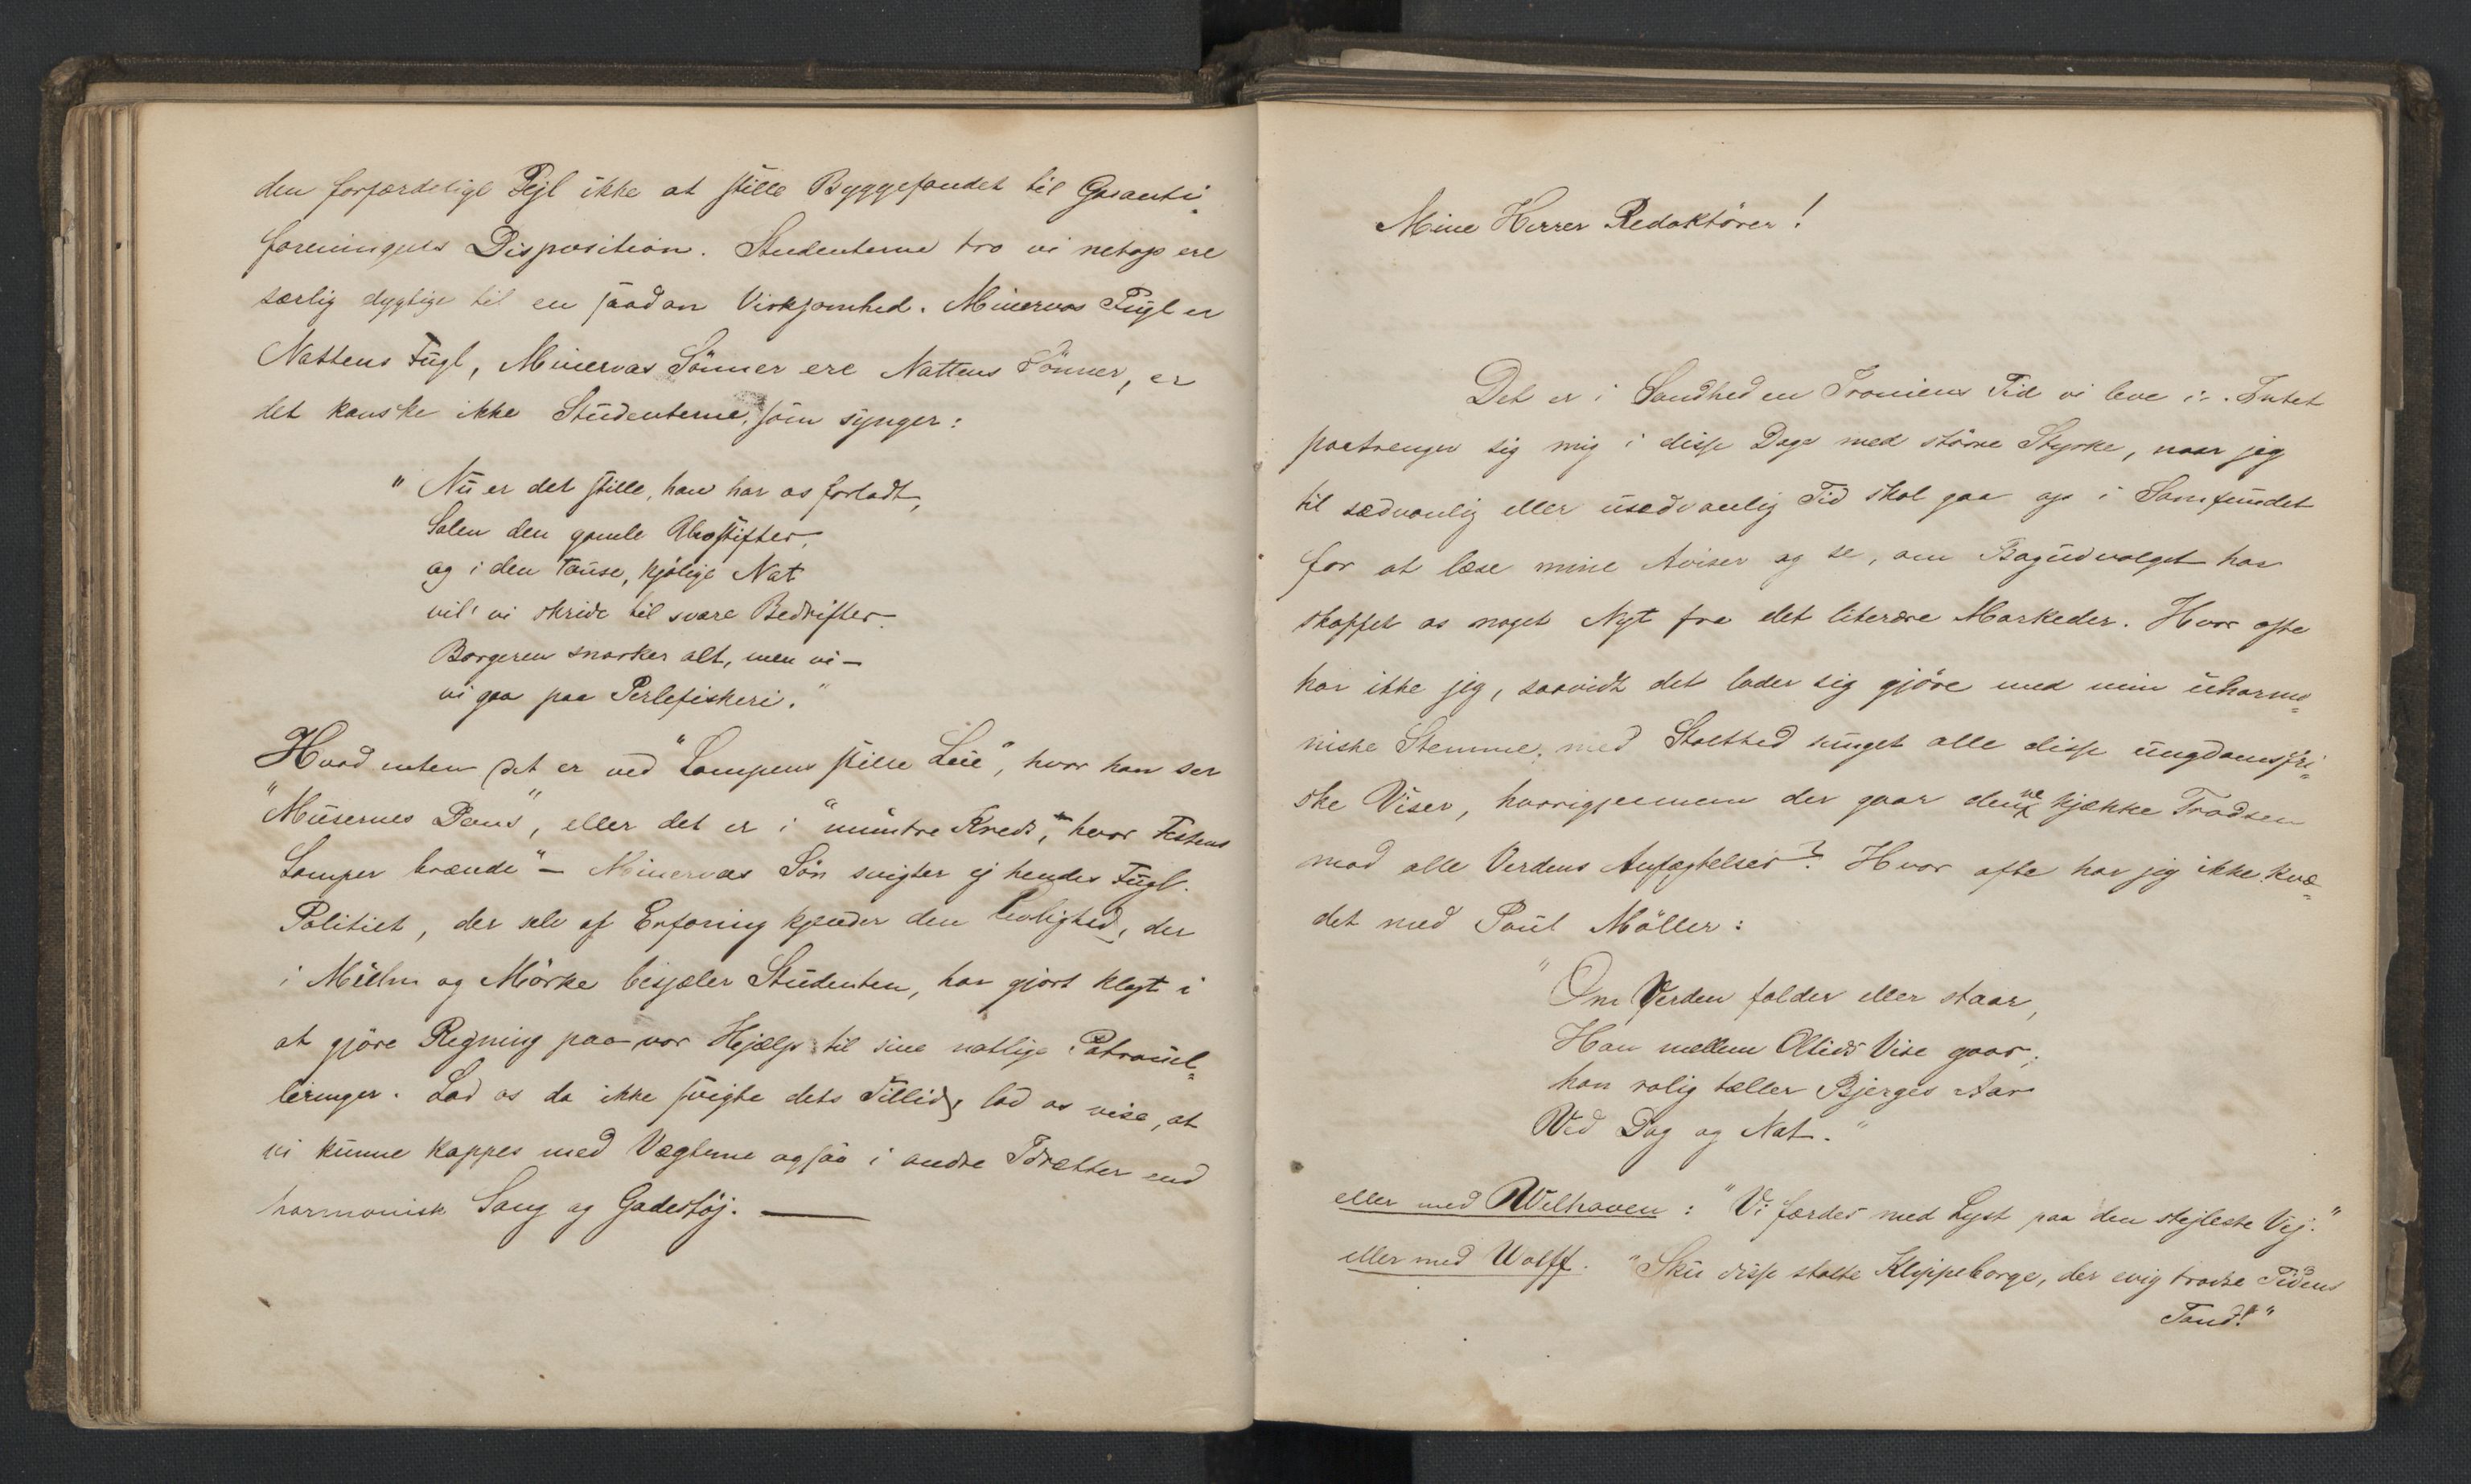 den forfærdelige Fejl ikke at stille Byggefondet til Garanti-
foreningens Disposition. Studenterne tro vi netop ere
særlig dygtige til en saadan Virksomhed. Minervas Fugl er
Nattens Fugl, Minervas Sönner ere Nattens Sönner, er
det kanske ikke Studenterne, som synger:
"Nu er det stille, han har os forladt,
Solen den gamle Urostifter,
og i den tause, kjölige Nat
vil vi skride til svare Bedrifter.
Borgeren snorker alt, men vi —
vi gaa paa Perlefiskeri."
Hvad enten det er ved "Lampens stille Lue", hvor han ser
"Musernes Dans", eller det er i "muntre Kreds", "hvor Festens
Lamper brænde" — Minervas Sön svigter ej hendes Fugl.
Politiet, der selv af Erfaring kjender den Livlighed, der
i Mulm og Mörke besjæler Studenten, har gjort klogt i
at gjöre Regning paa vor Hjælp til sine natlige Patrouil=
leringer. Lad os da ikke svigte dets Tillid, lad os vise, at
vi kunne kappes med Vægterne ogsaa i andre Idrætter end
harmonisk Sang og Gadestöj. —
Mine Herrer Redaktörer!
Det er i Sandhed en Ironiens Tid vi leve i. Intet
paatrenger sig mig i disse Dage med större Styrke, naar jeg
til sædvanlig eller usedvanlig Tid skal gaa op i Samfundet
for at læse mine Aviser og se, om Bogudvalget har
skaffet os noget Nyt fra det literære Markeder. Hvor ofte
har ikke jeg, saavidt det lader sig gjöre med min uharmo=
niske Stemme, med Stolthed sunget alle disse ungdomsfri=
ske Viser, hvorigjennem der gaar denne kjække Trodsen
mod alle Verdens Anfægtelser? Hvor ofte har jeg ikke kvæ=
det med Poul Möller:
"Om Verden falder eller staar,
Han mellem Oltids Vise gaar,
han rolig tæller Bjerges Aar
Ved Dag og Nat."
eller med Welhaven: "Vi færdes med Lyst paa den stejleste Vej."
eller med Wolff. "Sku disse stolte Klippeborge, der evig trodse Tidens
Tand!"